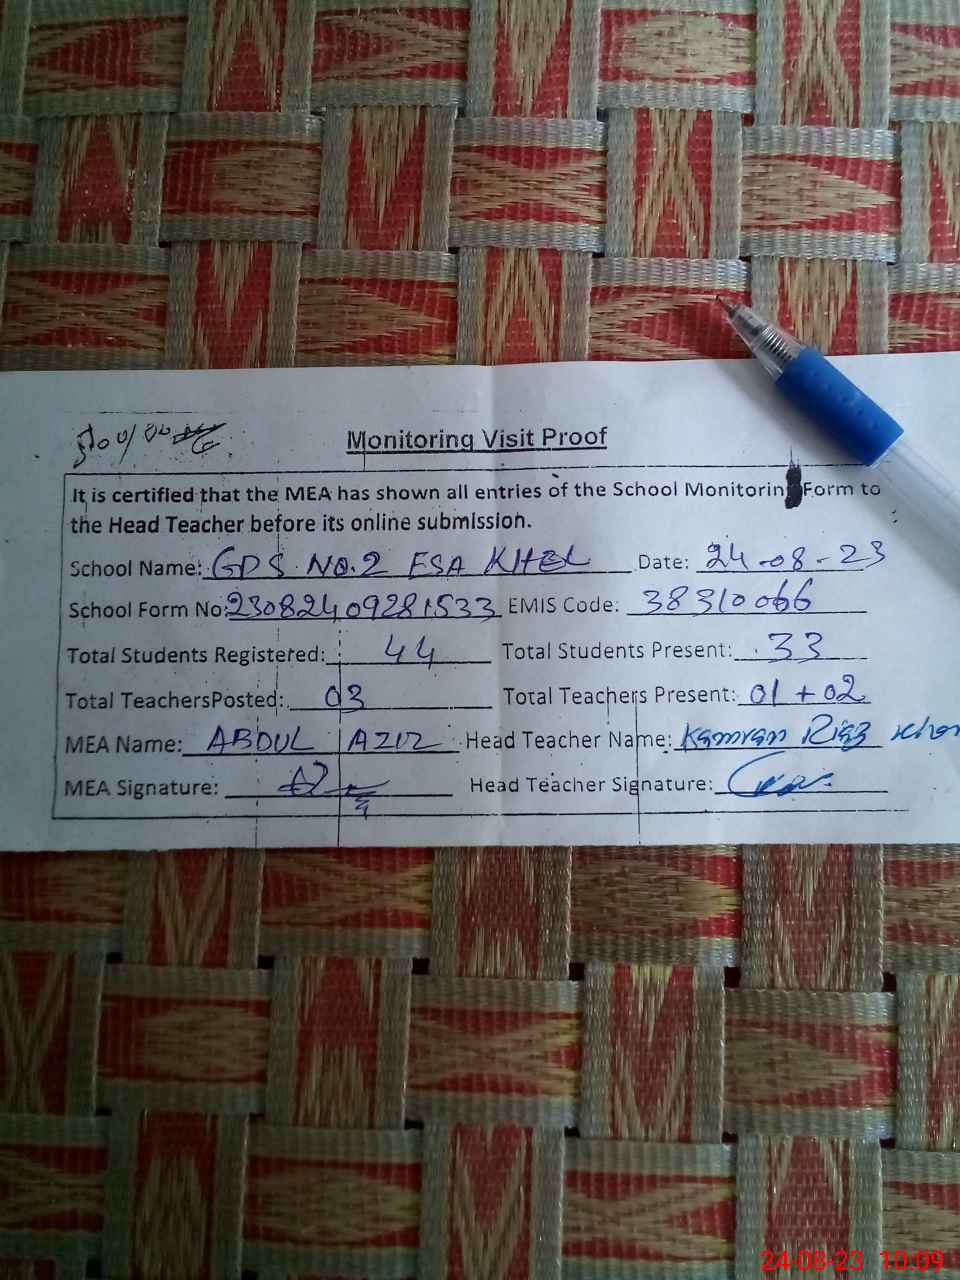 Monitoring Visit Proof
It is certified that the MEA has shown all entries of the School Monitorin Form to
the Head Teacher before its online submission.
School Name: GPS NO.2 ESA KHEL Date: 24-08-23
School Form No: 23082409281533 EMIS Code: 38310066
Total Students Registered: 44 Total Students Present: 33
Total TeachersPosted: 03 Total Teachers Present: 01+02
MEA Name: ABDUL AZIZ Head Teacher Name: Kamran Riaz Khan
MEA Signature: Head Teacher Signature:
24-08-23 10:09